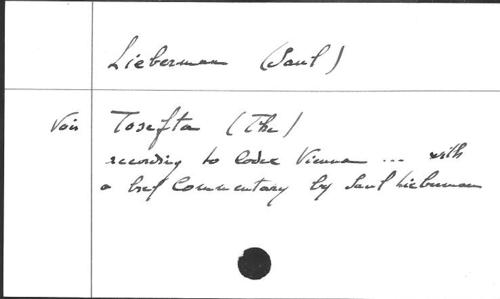 Lieberman (Saul)
Voir Tosefta (The)
according to Codex Vienna ... with
a brief Commentary by Saul Lieberman